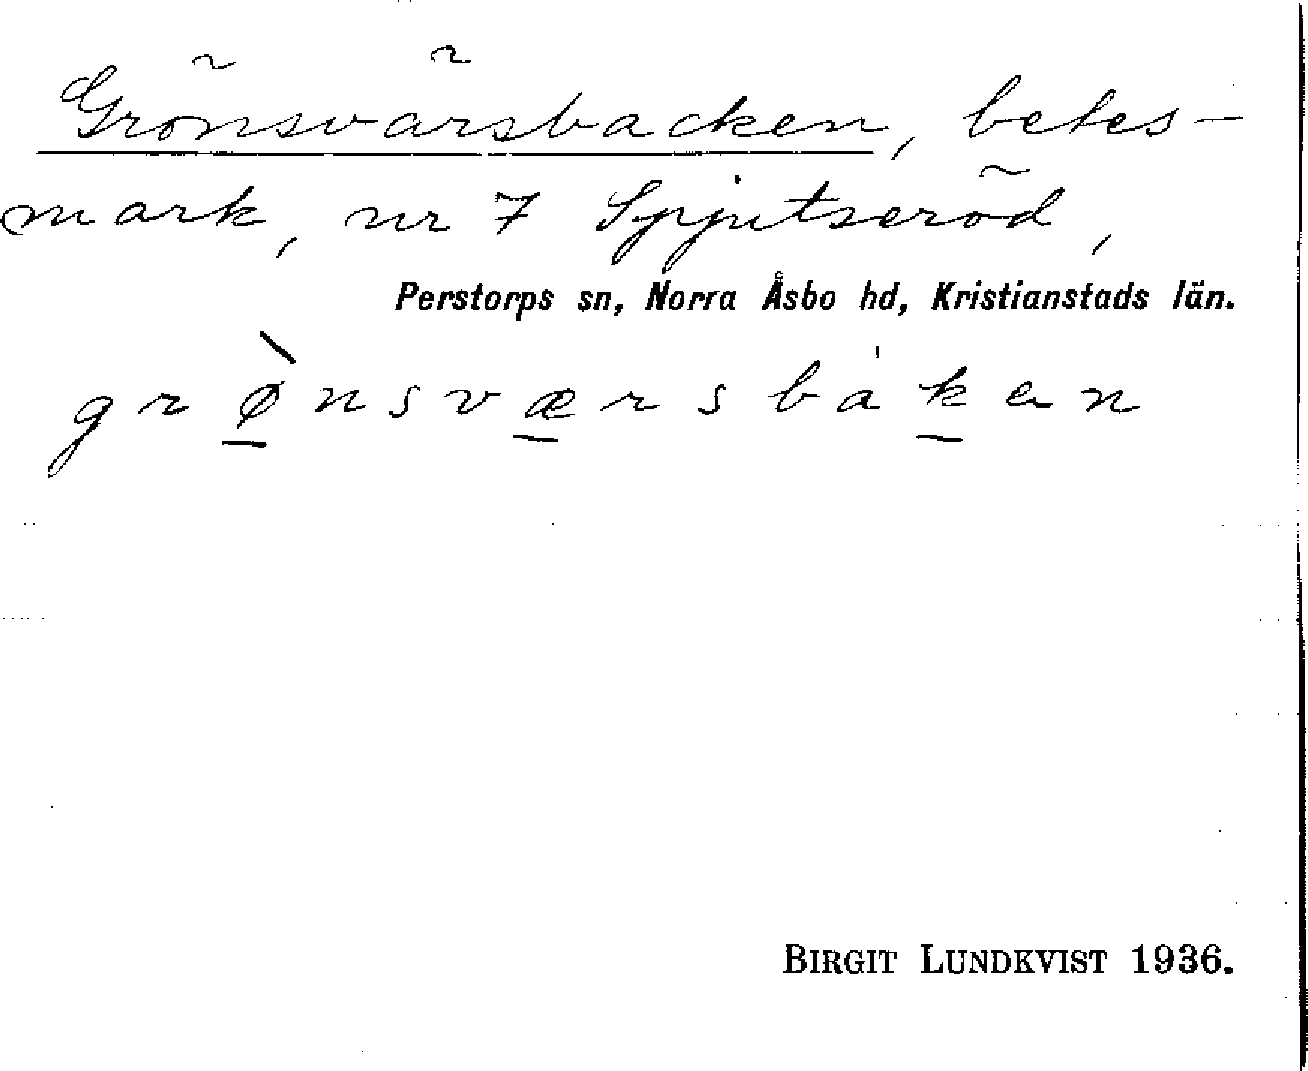 Grönsvärsbacken, betes-
mark, nr 7 Spjutseröd,
Perstorps sn, Norra Åsbo hd, Kristianstads län.
grø̱̀nsvæ̱rsbáḵen
BIRGIT LUNDKVIST 1936.